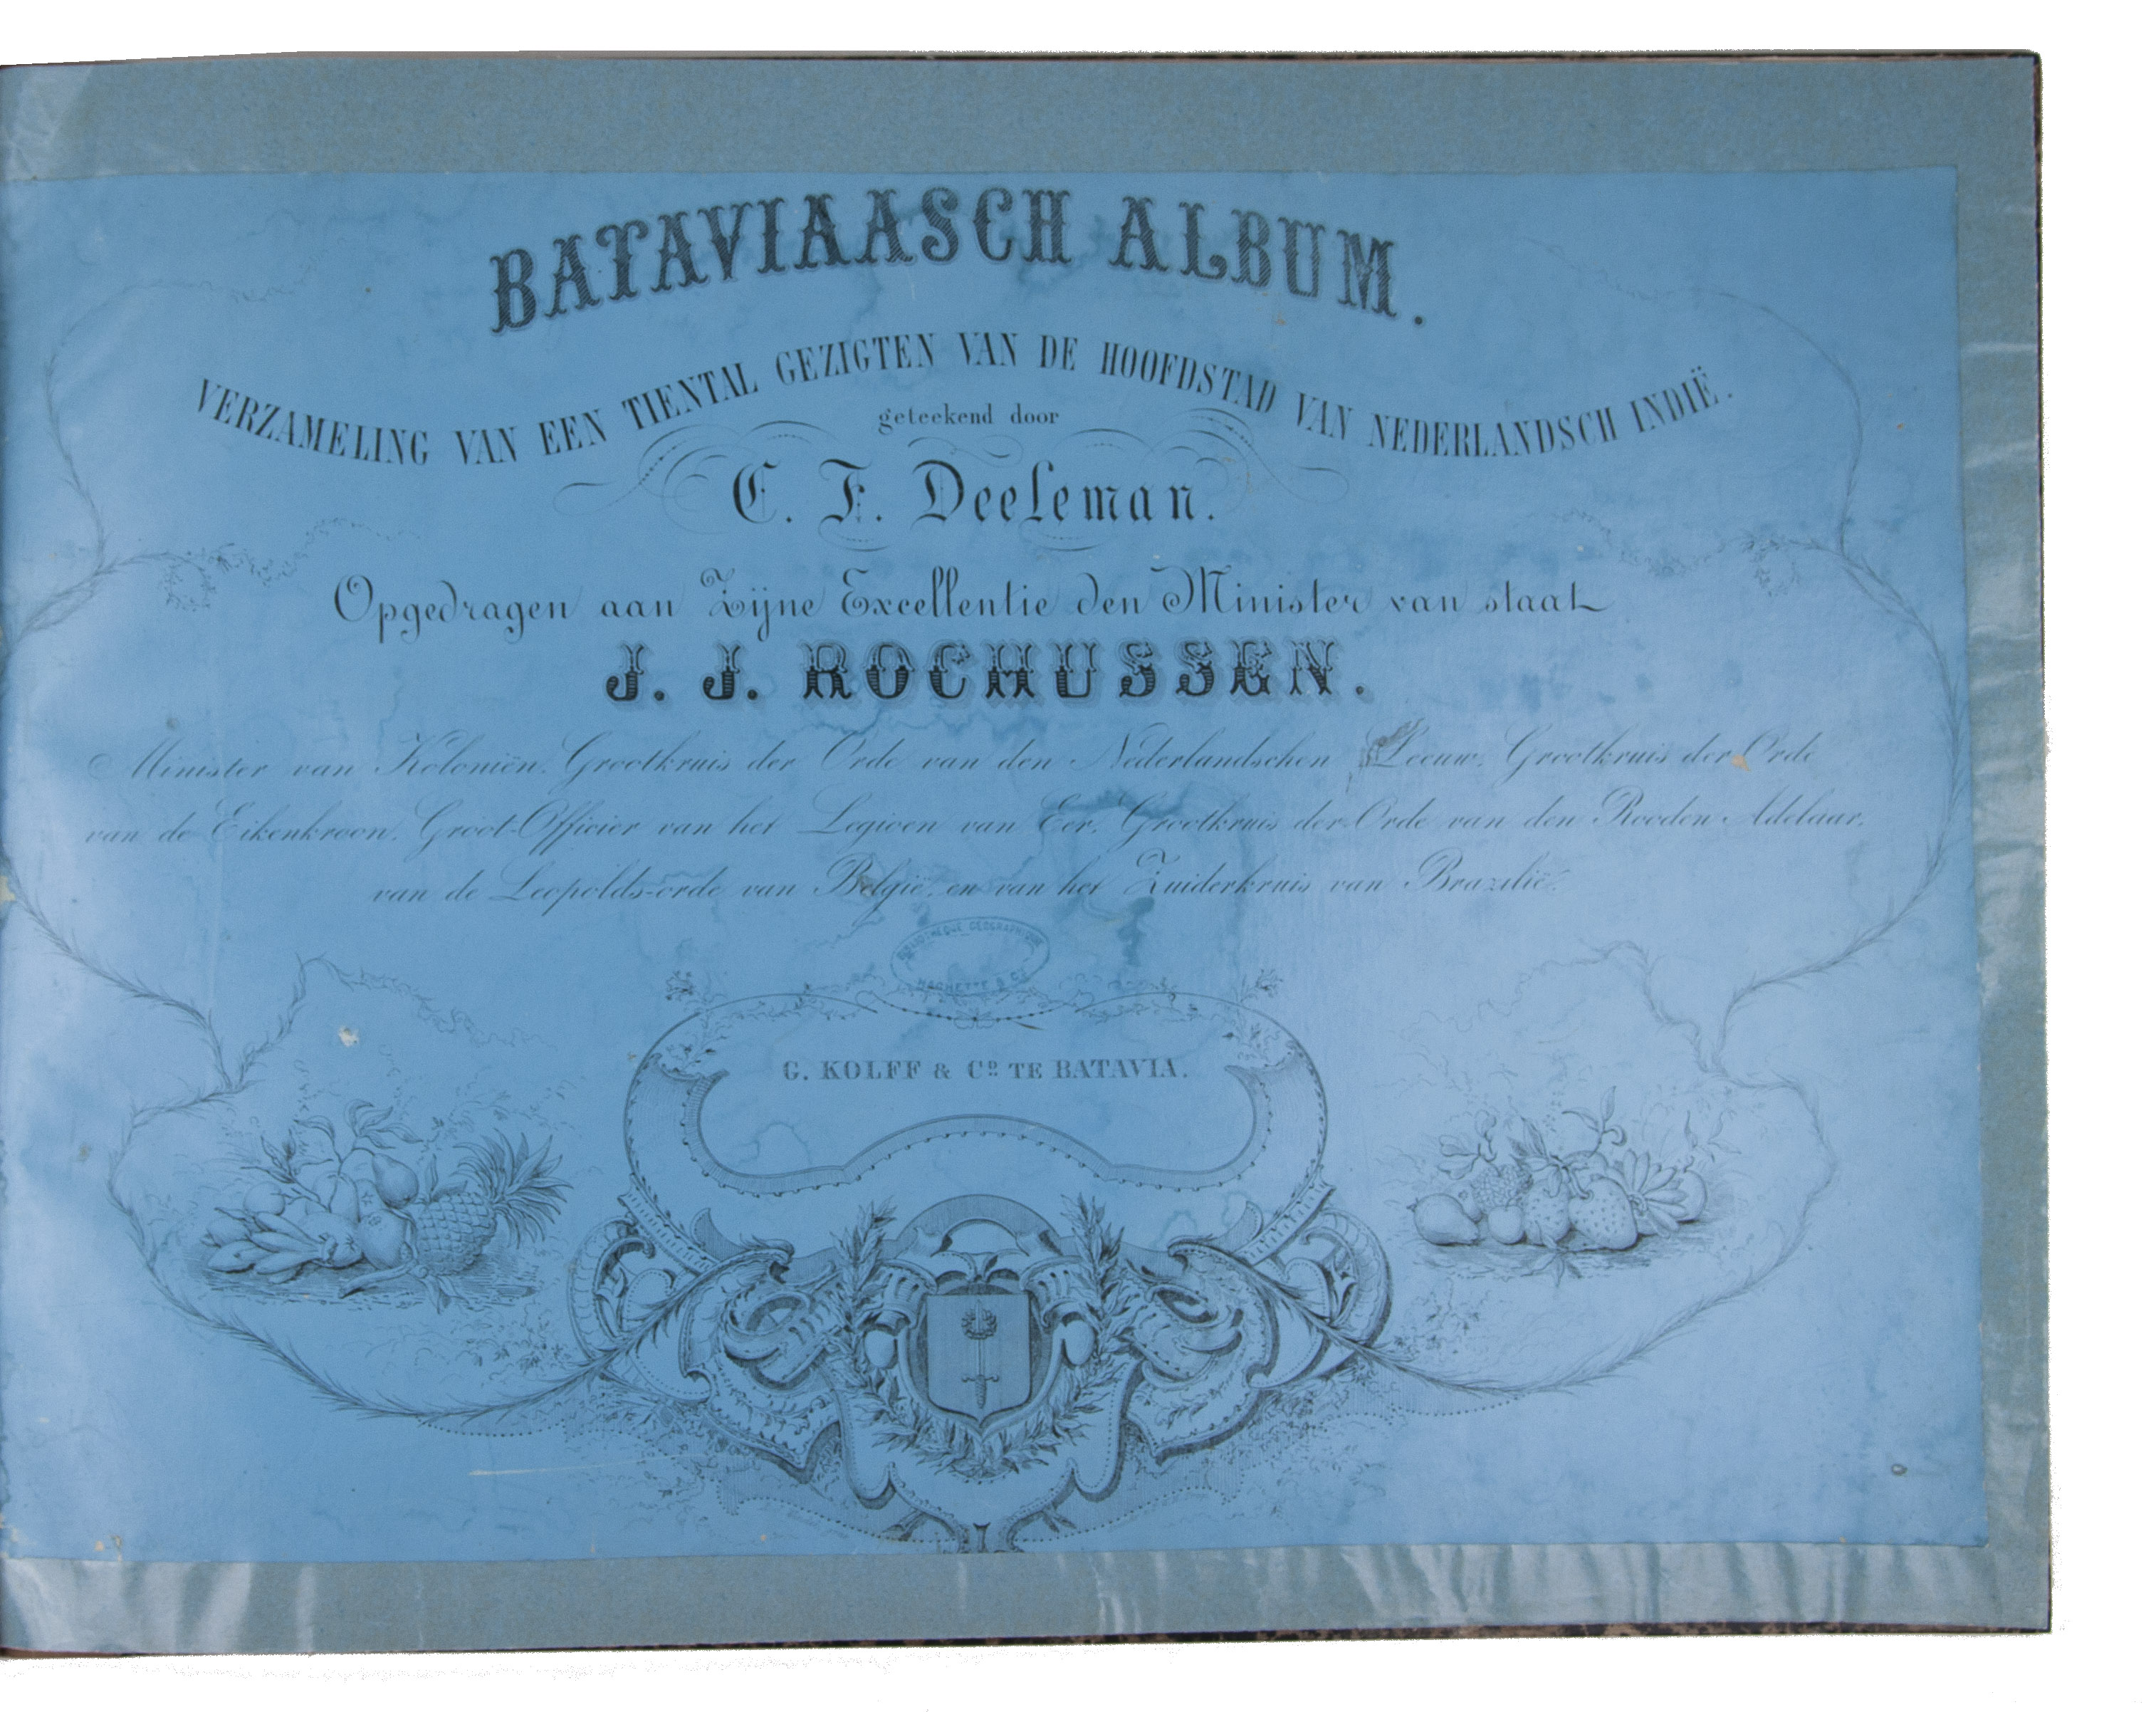 BATAVIAASCH ALBUM.
VERZAMELING VAN EEN TIENTAL GEZIGTEN VAN DE HOOFDSTAD VAN NEDERLANDSCH INDIË.
geteekend door
C. F. Deeleman.
Opgedragen aan Zijne Excellentie den Minister van staat
J. J. ROCHUSSEN.
Minister van Koloniën, Grootkruis der Orde van den Nederlandschen Leeuw, Grootkruis der Orde
van de Eikenkroon, Groot-Officier van het Legioen van Eer, Grootkruis der Orde van den Rooden Adelaar,
van de Leopolds-orde van België, en van het Zuiderkruis van Brazilië.
BIBLIOTHEQUE GEOGRAPHIQUE
HACHETTE & Cie
G. KOLFF & Co. TE BATAVIA.